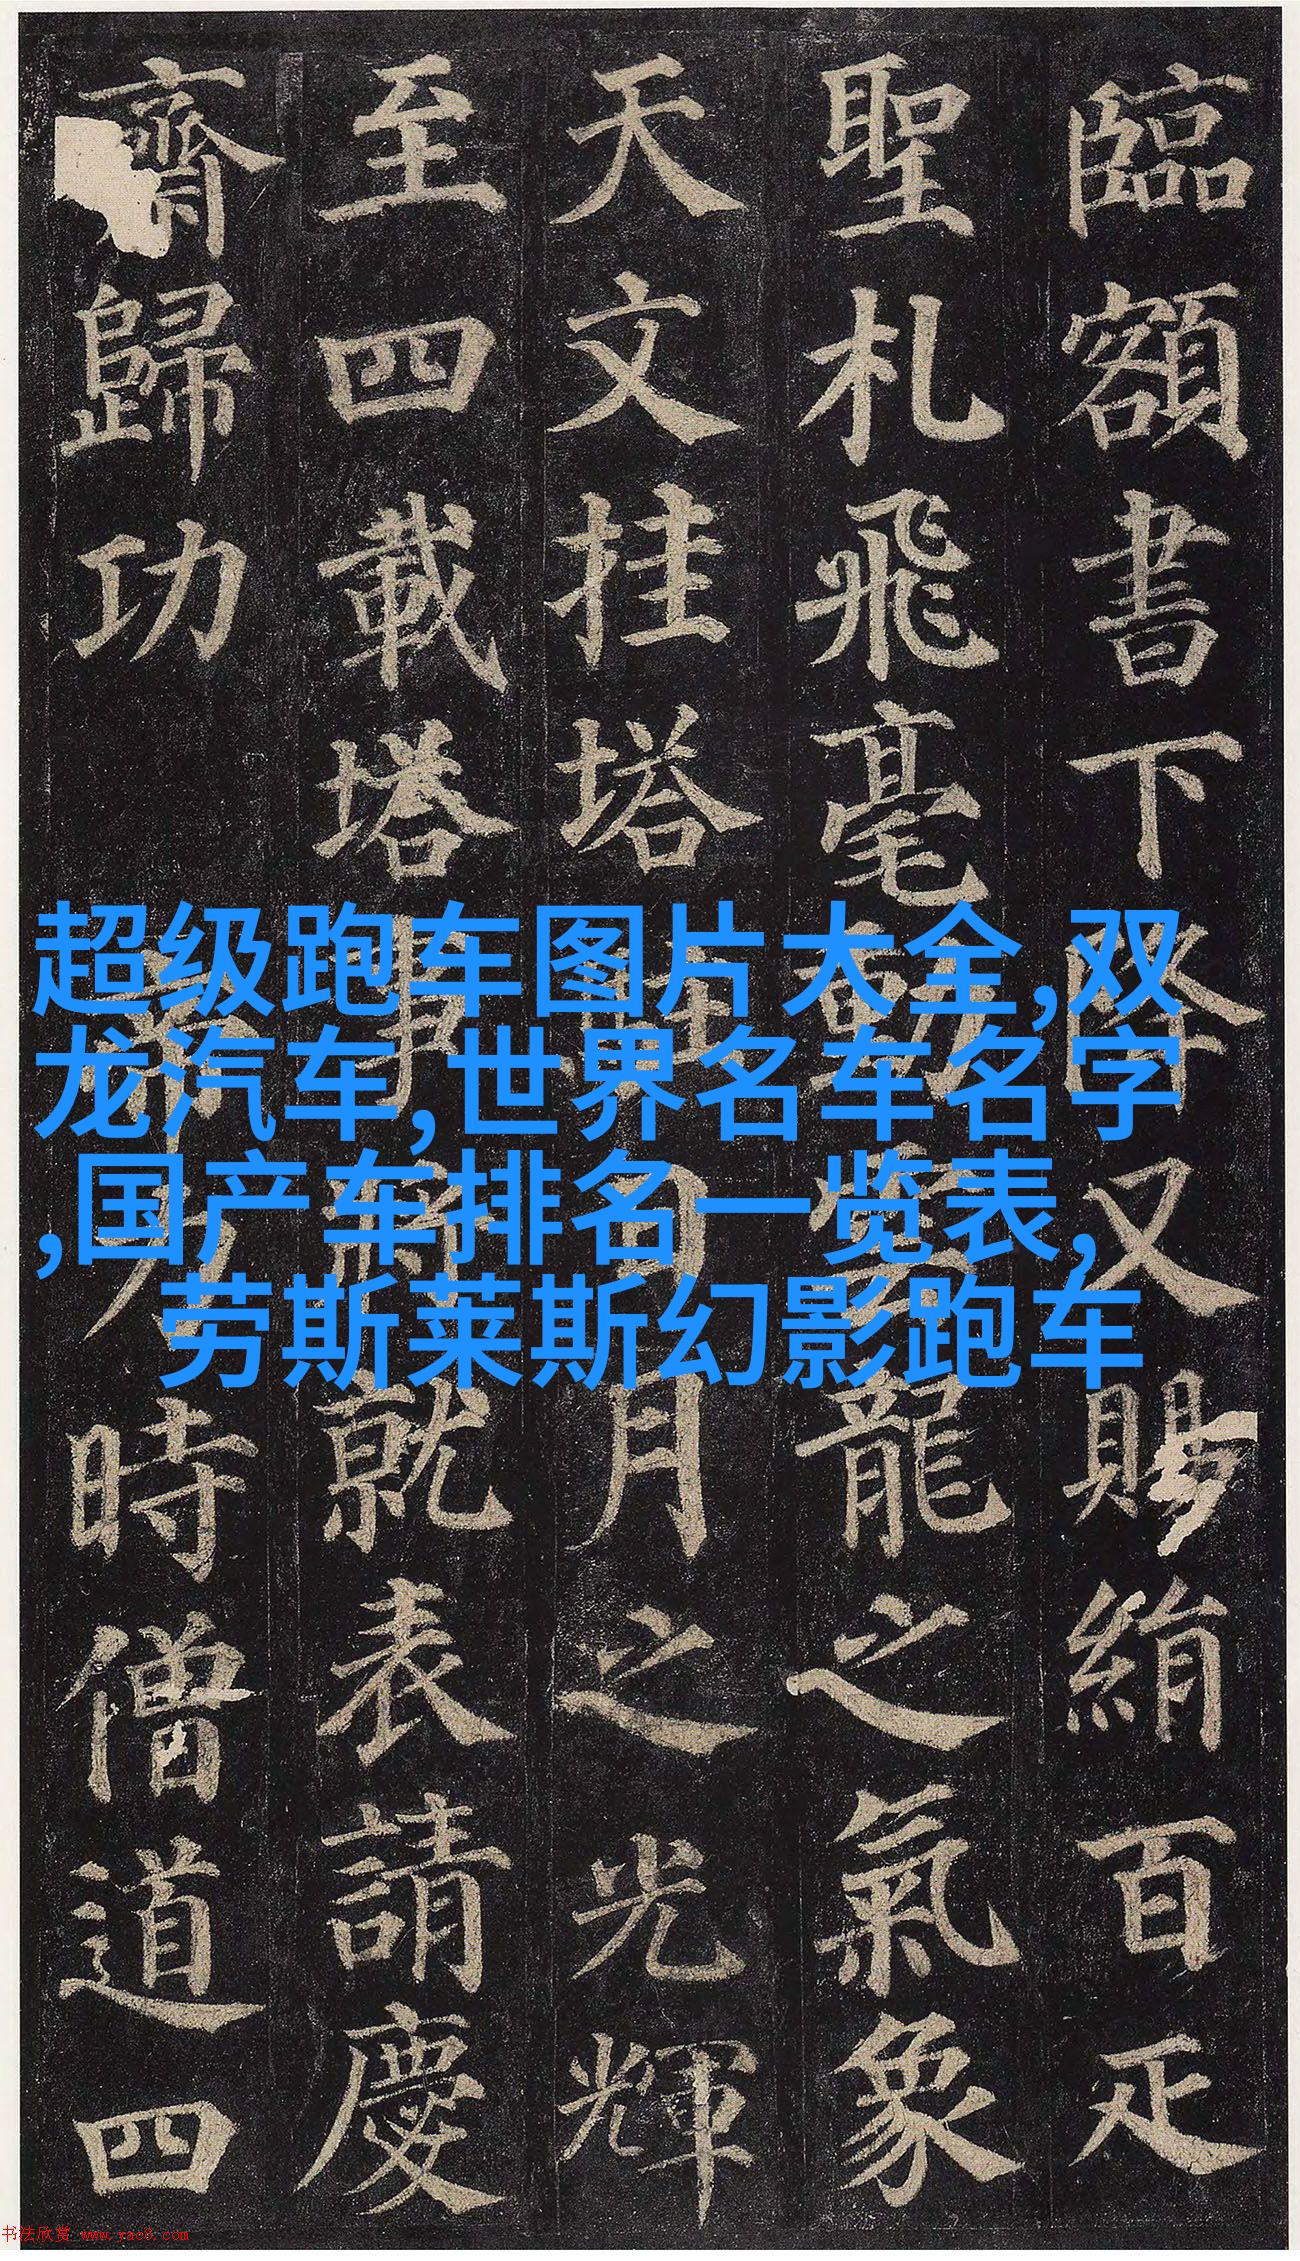 臨額書下降又賜絹百疋
聖札飛毫動雲龍之氣象
天文挂塔駐日月之光輝
至四載塔事將就表請慶
齋歸功帝力時僧道四
超级跑车图片大全,双
龙汽车,世界名车名字
,国产车排名一览表,
劳斯莱斯幻影跑车
书法欣赏 www.yac8.com